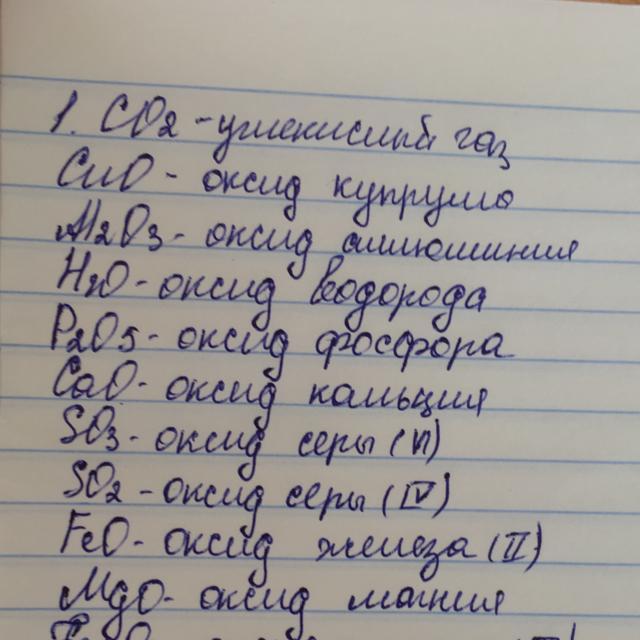 1. CO2 - углекислый газ
CuO - оксид купрума
Al2O3 - оксид алюминия
H2O - оксид водорода
P2O5 - оксид фосфора
CaO - оксид кальция
SO3 - оксид серы (VI)
SO2 - оксид серы (IV)
FeO - оксид железа (II)
MgO - оксид магния